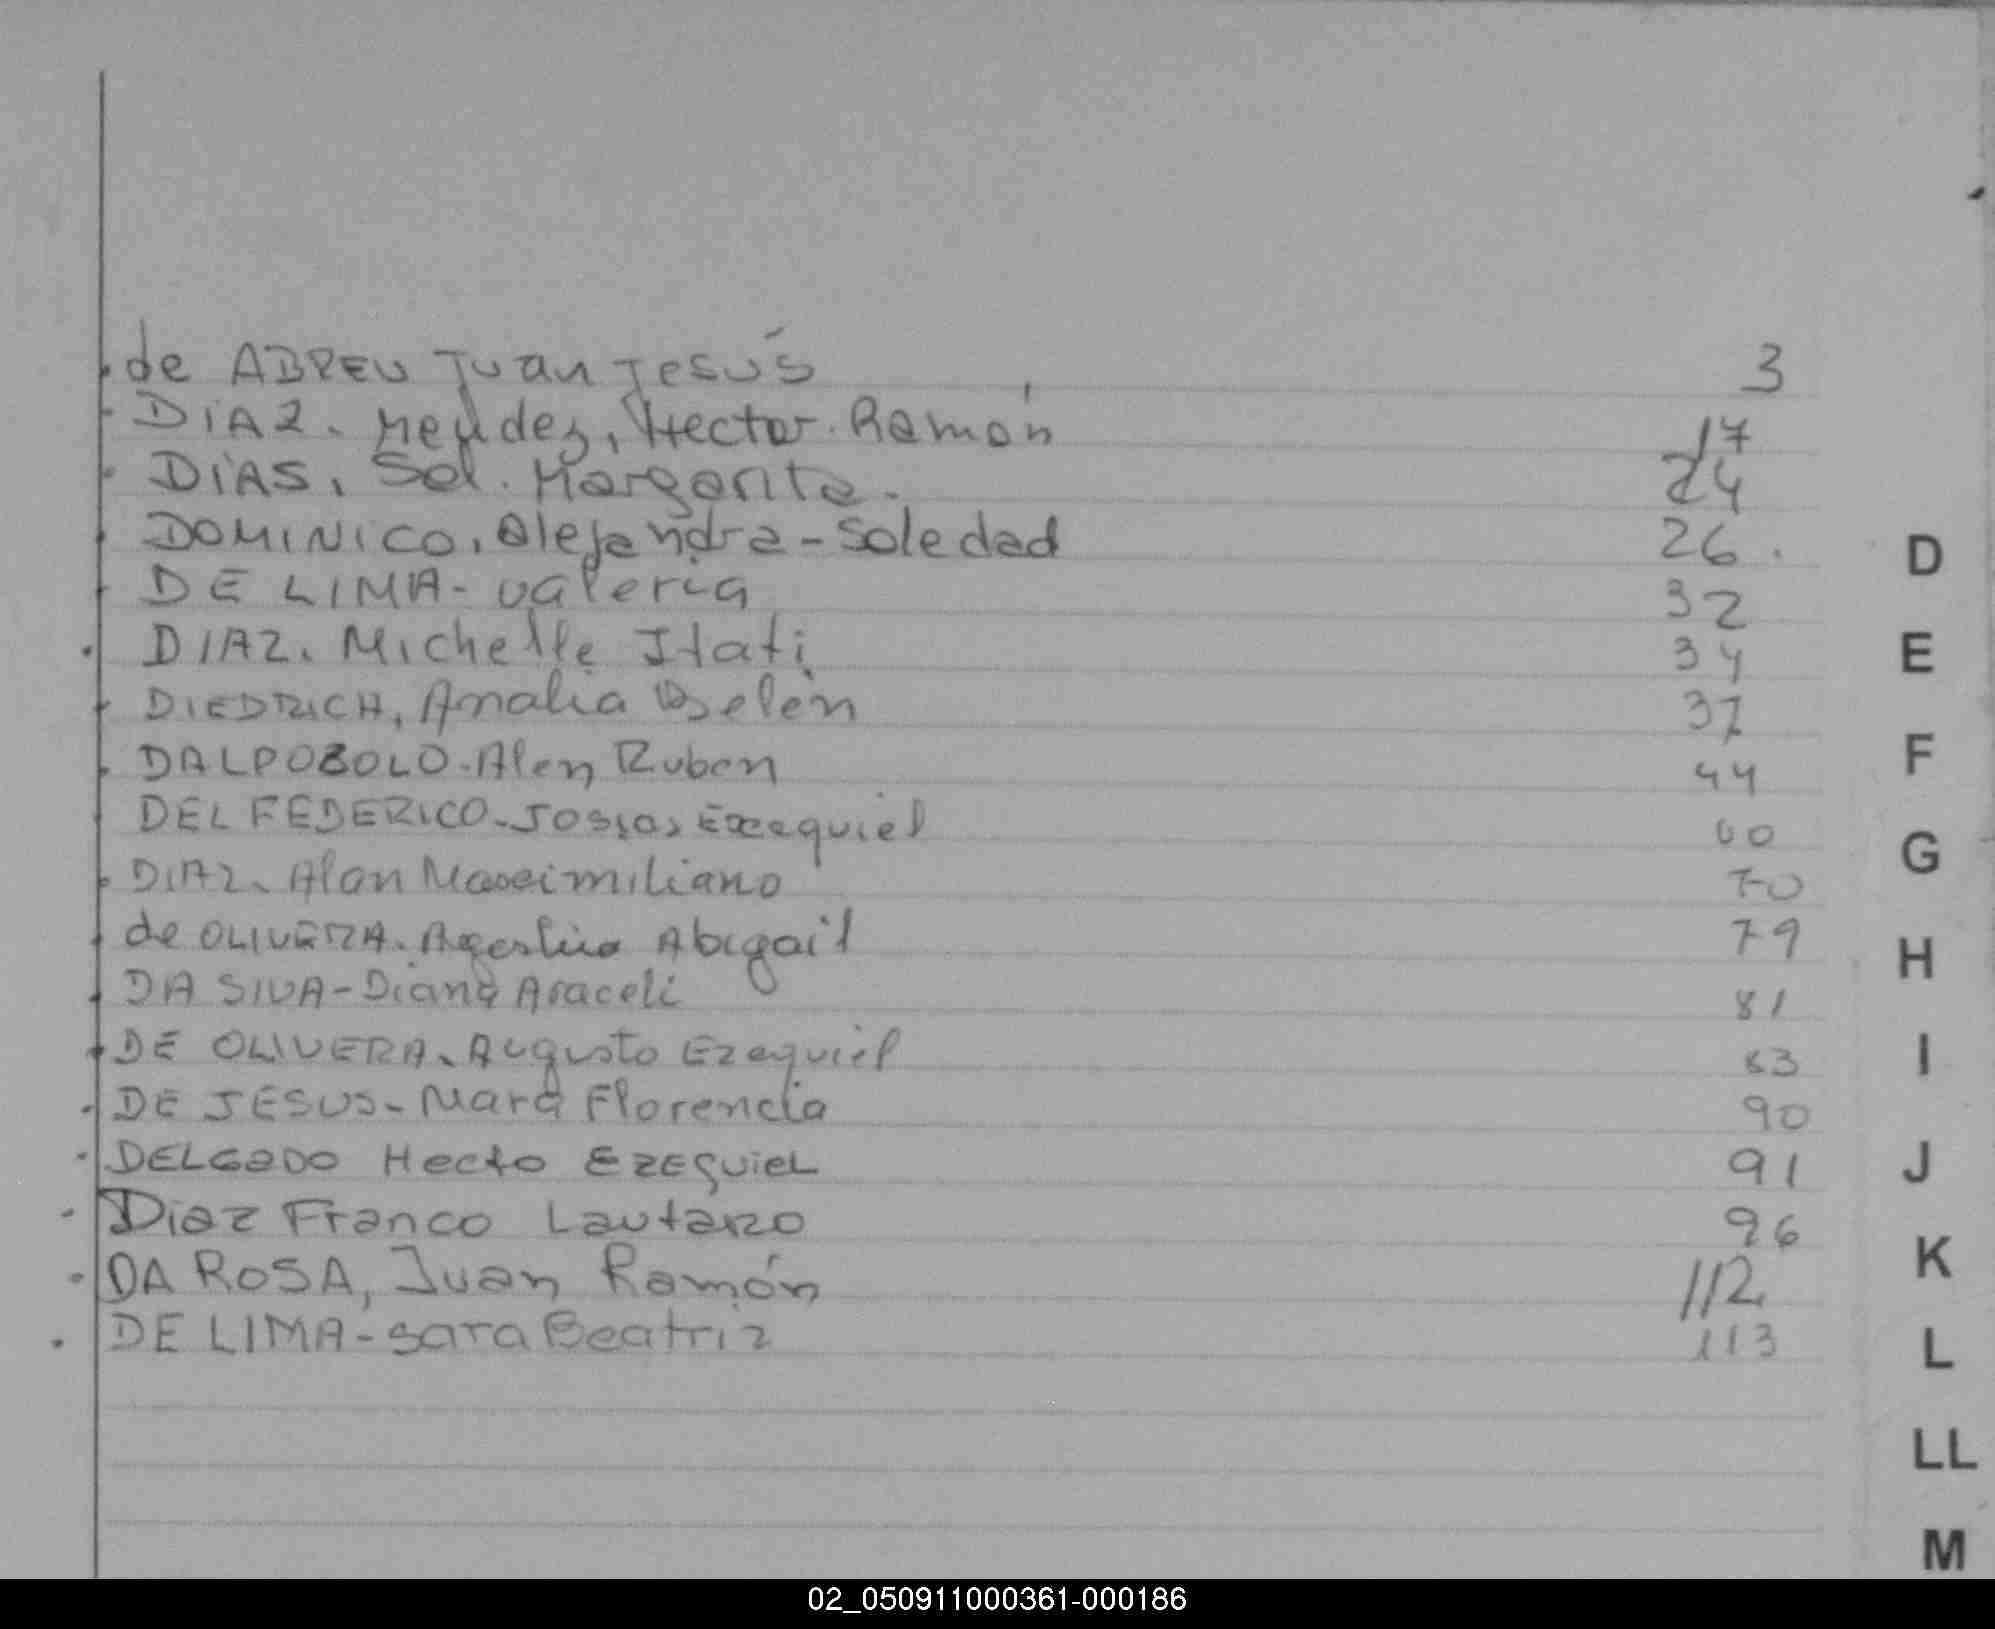 de ABREU Juan Jesús 3
DIAZ. Mendez, Hector. Ramón 17
DIAS, Sol. Margarita. 24
DOMINICO, Alejandra - Soledad 26.
DE LIMA - Valeria 32
DIAZ. Michelle Itati 34
DIEDRICH, Analia Belén 37
DALPOBOLO - Alen Ruben 44
DEL FEDERICO - Josias Exequiel 60
DIAZ. Alan Maximiliano 70
de OLIVERA. Agostina Abigail 79
DA SILVA - Diana Araceli 81
DE OLIVERA. Augusto Ezequiel 83
DE JESUS - Mara Florencia 90
DELGADO Hecto EZEQUIEL 91
Diaz Franco Lautaro 96
DA ROSA, Juan Ramón 112
DE LIMA - Sara Beatriz 113
D
E
F
G
H
I
J
K
L
LL
M
02_050911000361-000186